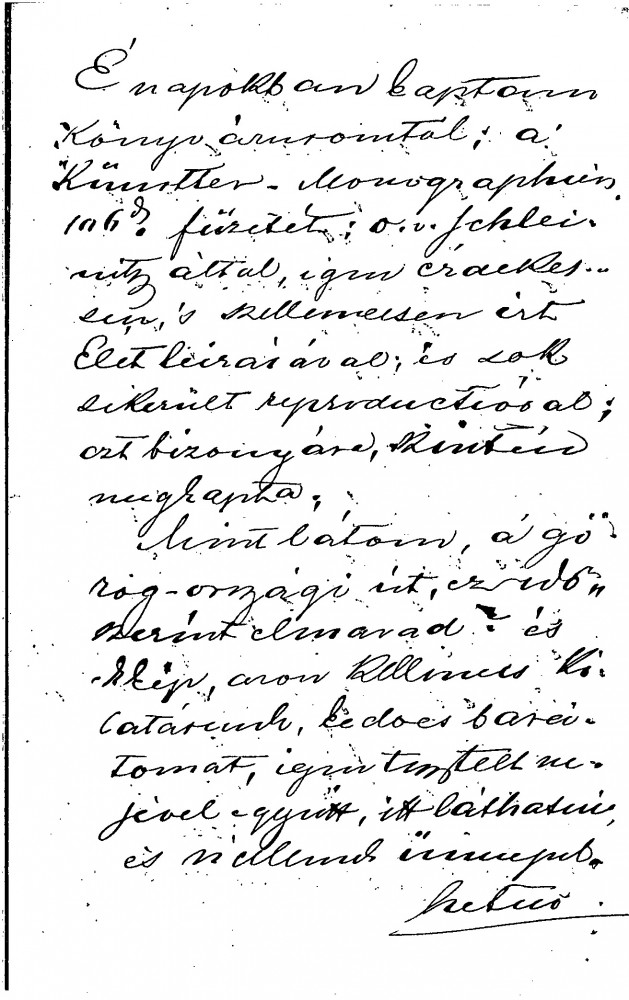 É napokban kaptam
Könyvárusomtól; a
Künstler-Monographien
106d. füzetét; O. v. Schlei-
nitz által, igen érdekes-
sen, 's kellemesen írt
Életleírásával; és sok
sikerült reproductióval;
ezt bizonyára, szintén
megkapta.
Mint látom, á gö-
rög-országi út, ez idő
szerint elmarad? és
szép, azon kellemes Ki-
látásunk, kedves bará-
tomat, igen tisztelt ne-
jével együtt, itt láthatni,
és ünnepel-
hetni.